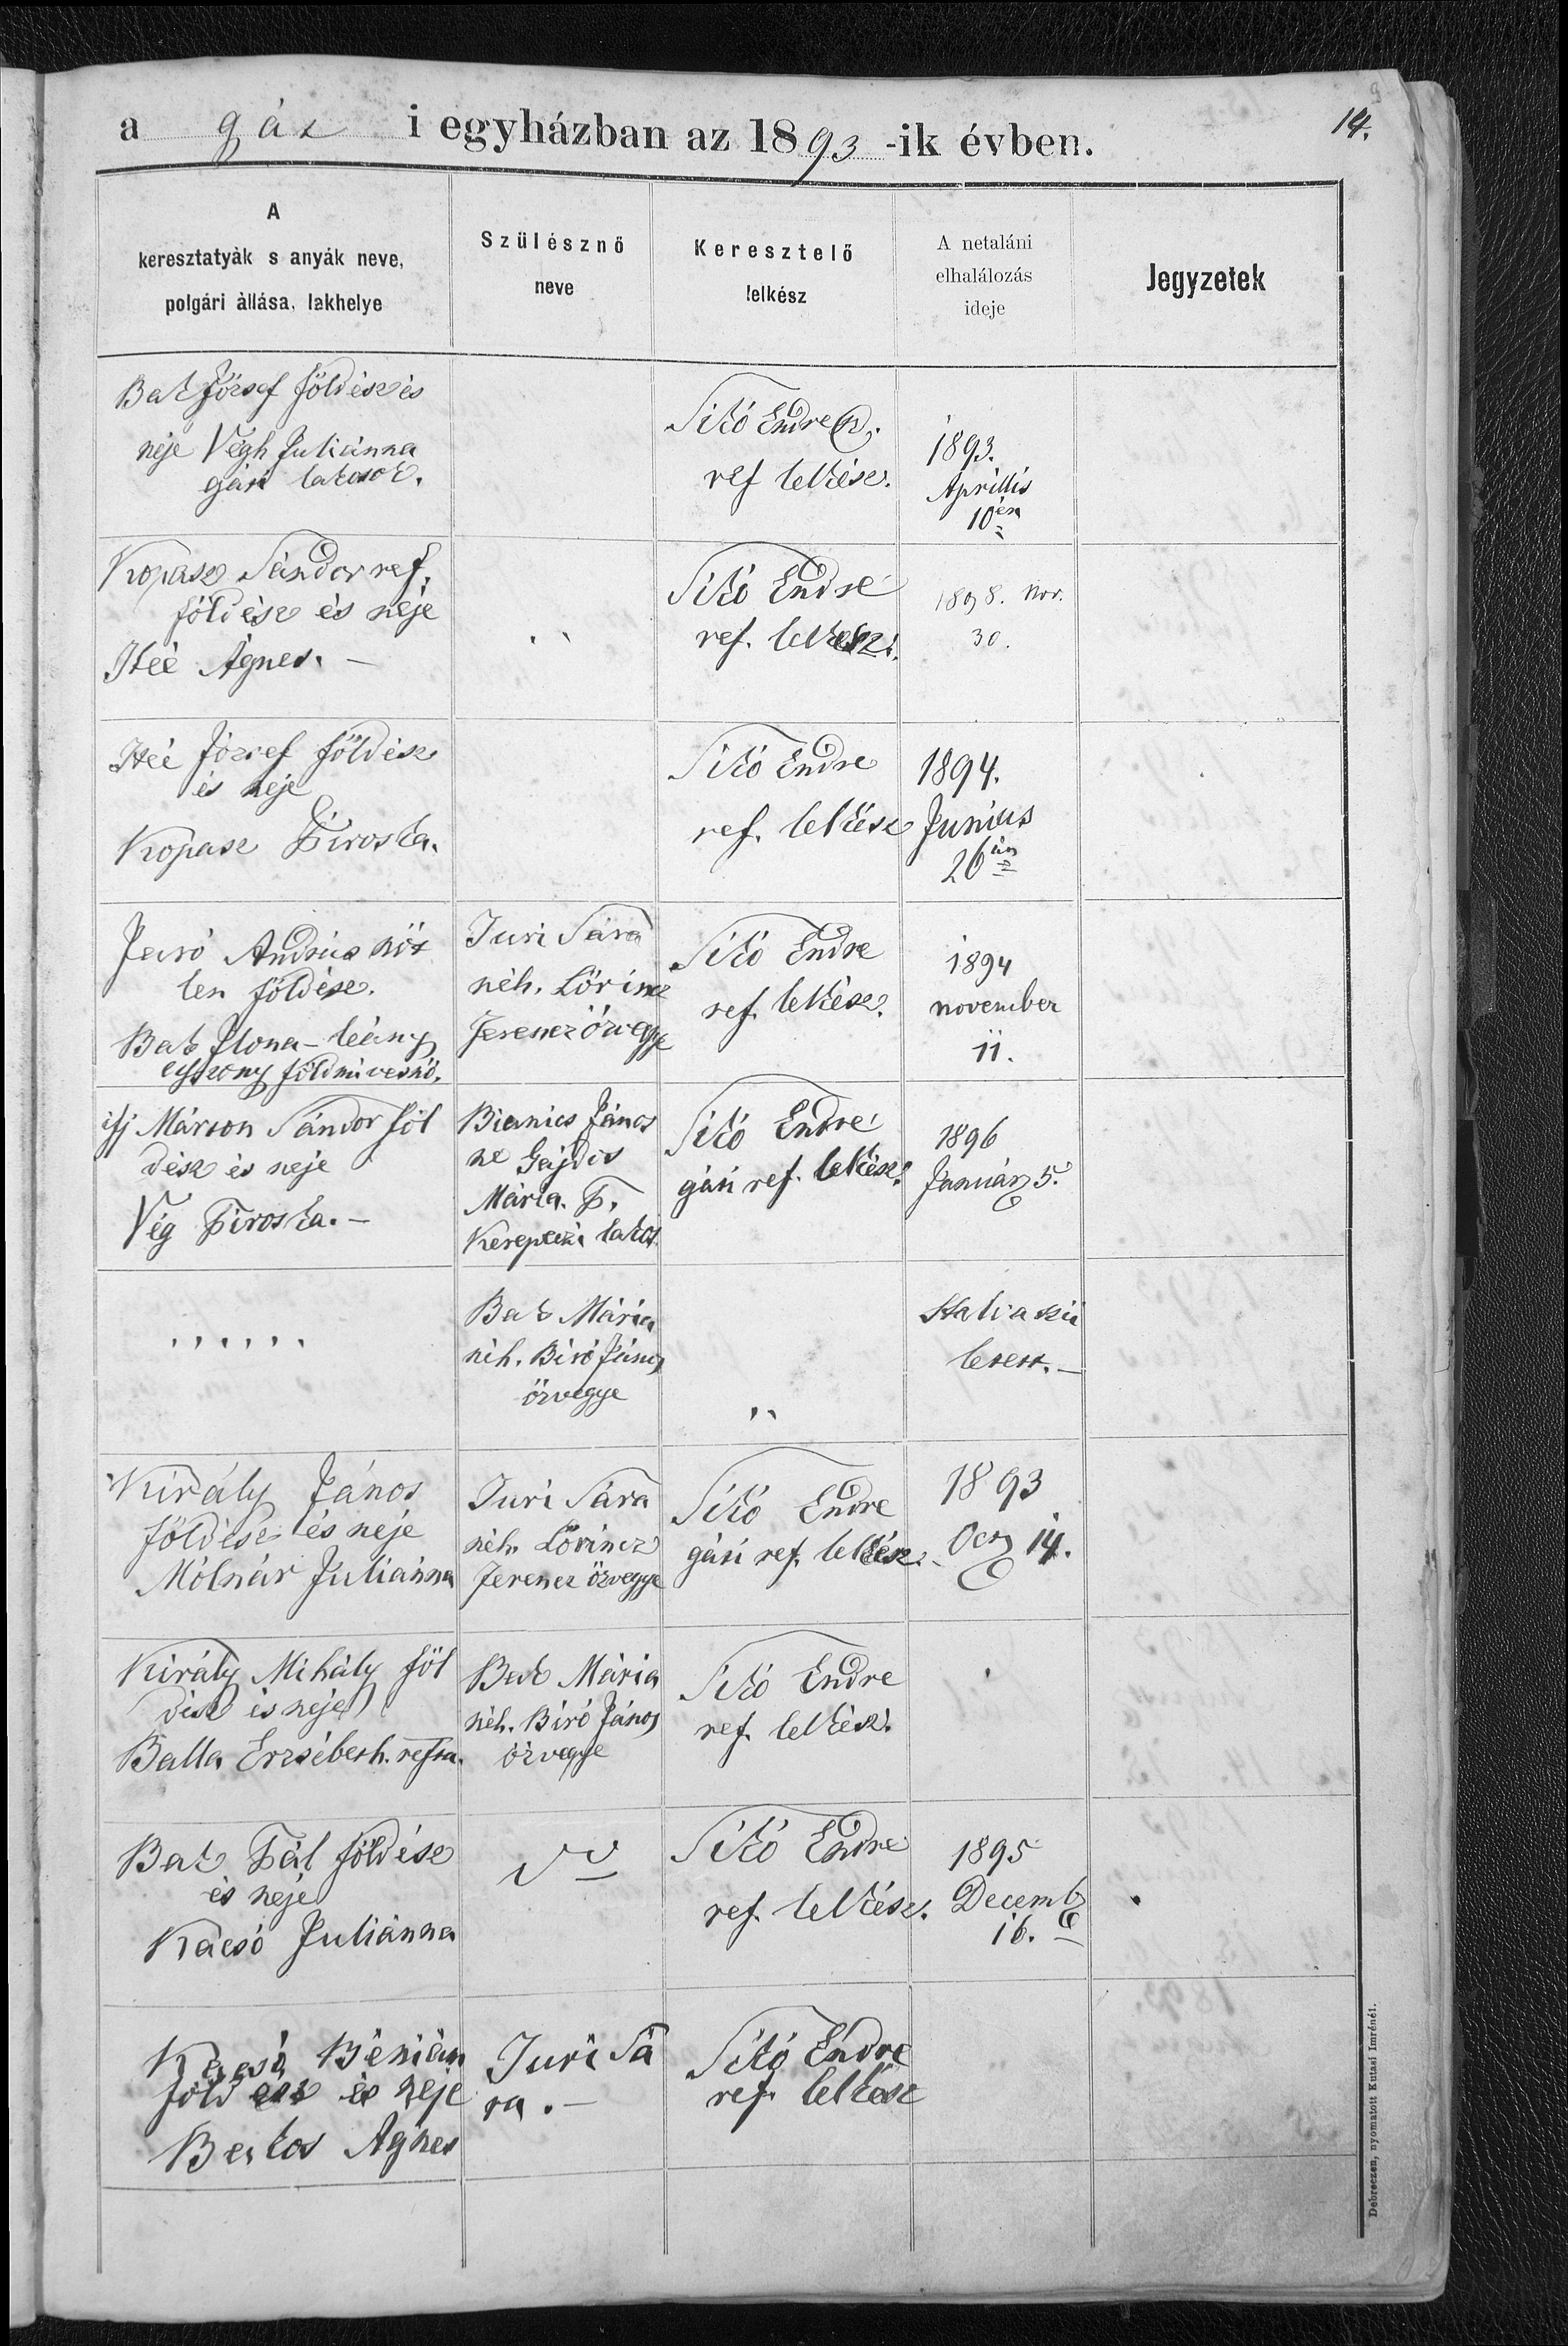 a gáz i egyházban az 1893-ik évben.
14.
A
keresztatyák s anyák neve,
polgári állása, lakhelye
Szülésznő
neve
Keresztelő
lelkész
A netaláni
elhalálozás
ideje
Jegyzetek
Bak József földész és
neje Végh Juliánna
gázi lakosok.
Sikó Endre
ref lelkész.
1893.
Aprillis
10én
Kopasz Sándor ref.
földész és neje
Itéé Ágnes. —
Sikó Endre
ref. lelkész.
1898. Nov.
30.
Itéé József földész
és neje
Kopasz Piroska.
Sikó Endre
ref. lelkész
1894.
Junius
26án
András nőt
len földész.
Bak Ilona - leány
földmivesnő.
Turi Sára
néh. Lőrincz
Ferencz özvegye
Sikó Endre
ref. lelkész.
1894
november
11.
ifj Márton Sándor föl
dész és neje
Vég Piroska. —
Bianics János
né Gajdos
Mária. P.
Kerepeczi lakos
Sikó Endre
gázi ref. lelkész.
1896
Január 5.
,,,,,,
Bak Mária
néh. Biró János
özvegye
,,
Halva szü
letett. —
Király János
földész és neje
Mólnár Juliánna
Turi Sára
néh. Lőrincz
Ferencz özvegye
Sikó Endre
gázi ref. lelkész.
1893
Oct 14.
Király Mihály föl
dész és neje
Balla Erzsébeth.
Bak Mária
néh. Biró János
özvegye
Sikó Endre
ref. lelkész.
Bak Pál földész
és neje
Kacsó Juliánna
Sikó Endre
ref. lelkész.
1895
Decemb
16.
Kacsó Béniám
földész és neje
Bakos Ágnes
Turi Sá
ra. —
Sikó Endre
ref. lelkész
Debreczen, nyomatott Kutasi Imrénél.